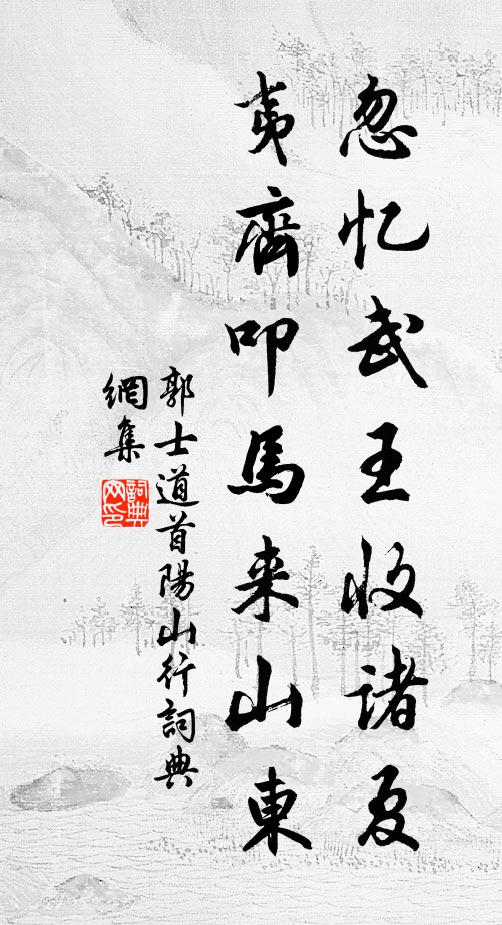 忽忆武王收诸夏
夷齊叩馬来山東
郭士道首陽山行詞典
網集
詞典
网印